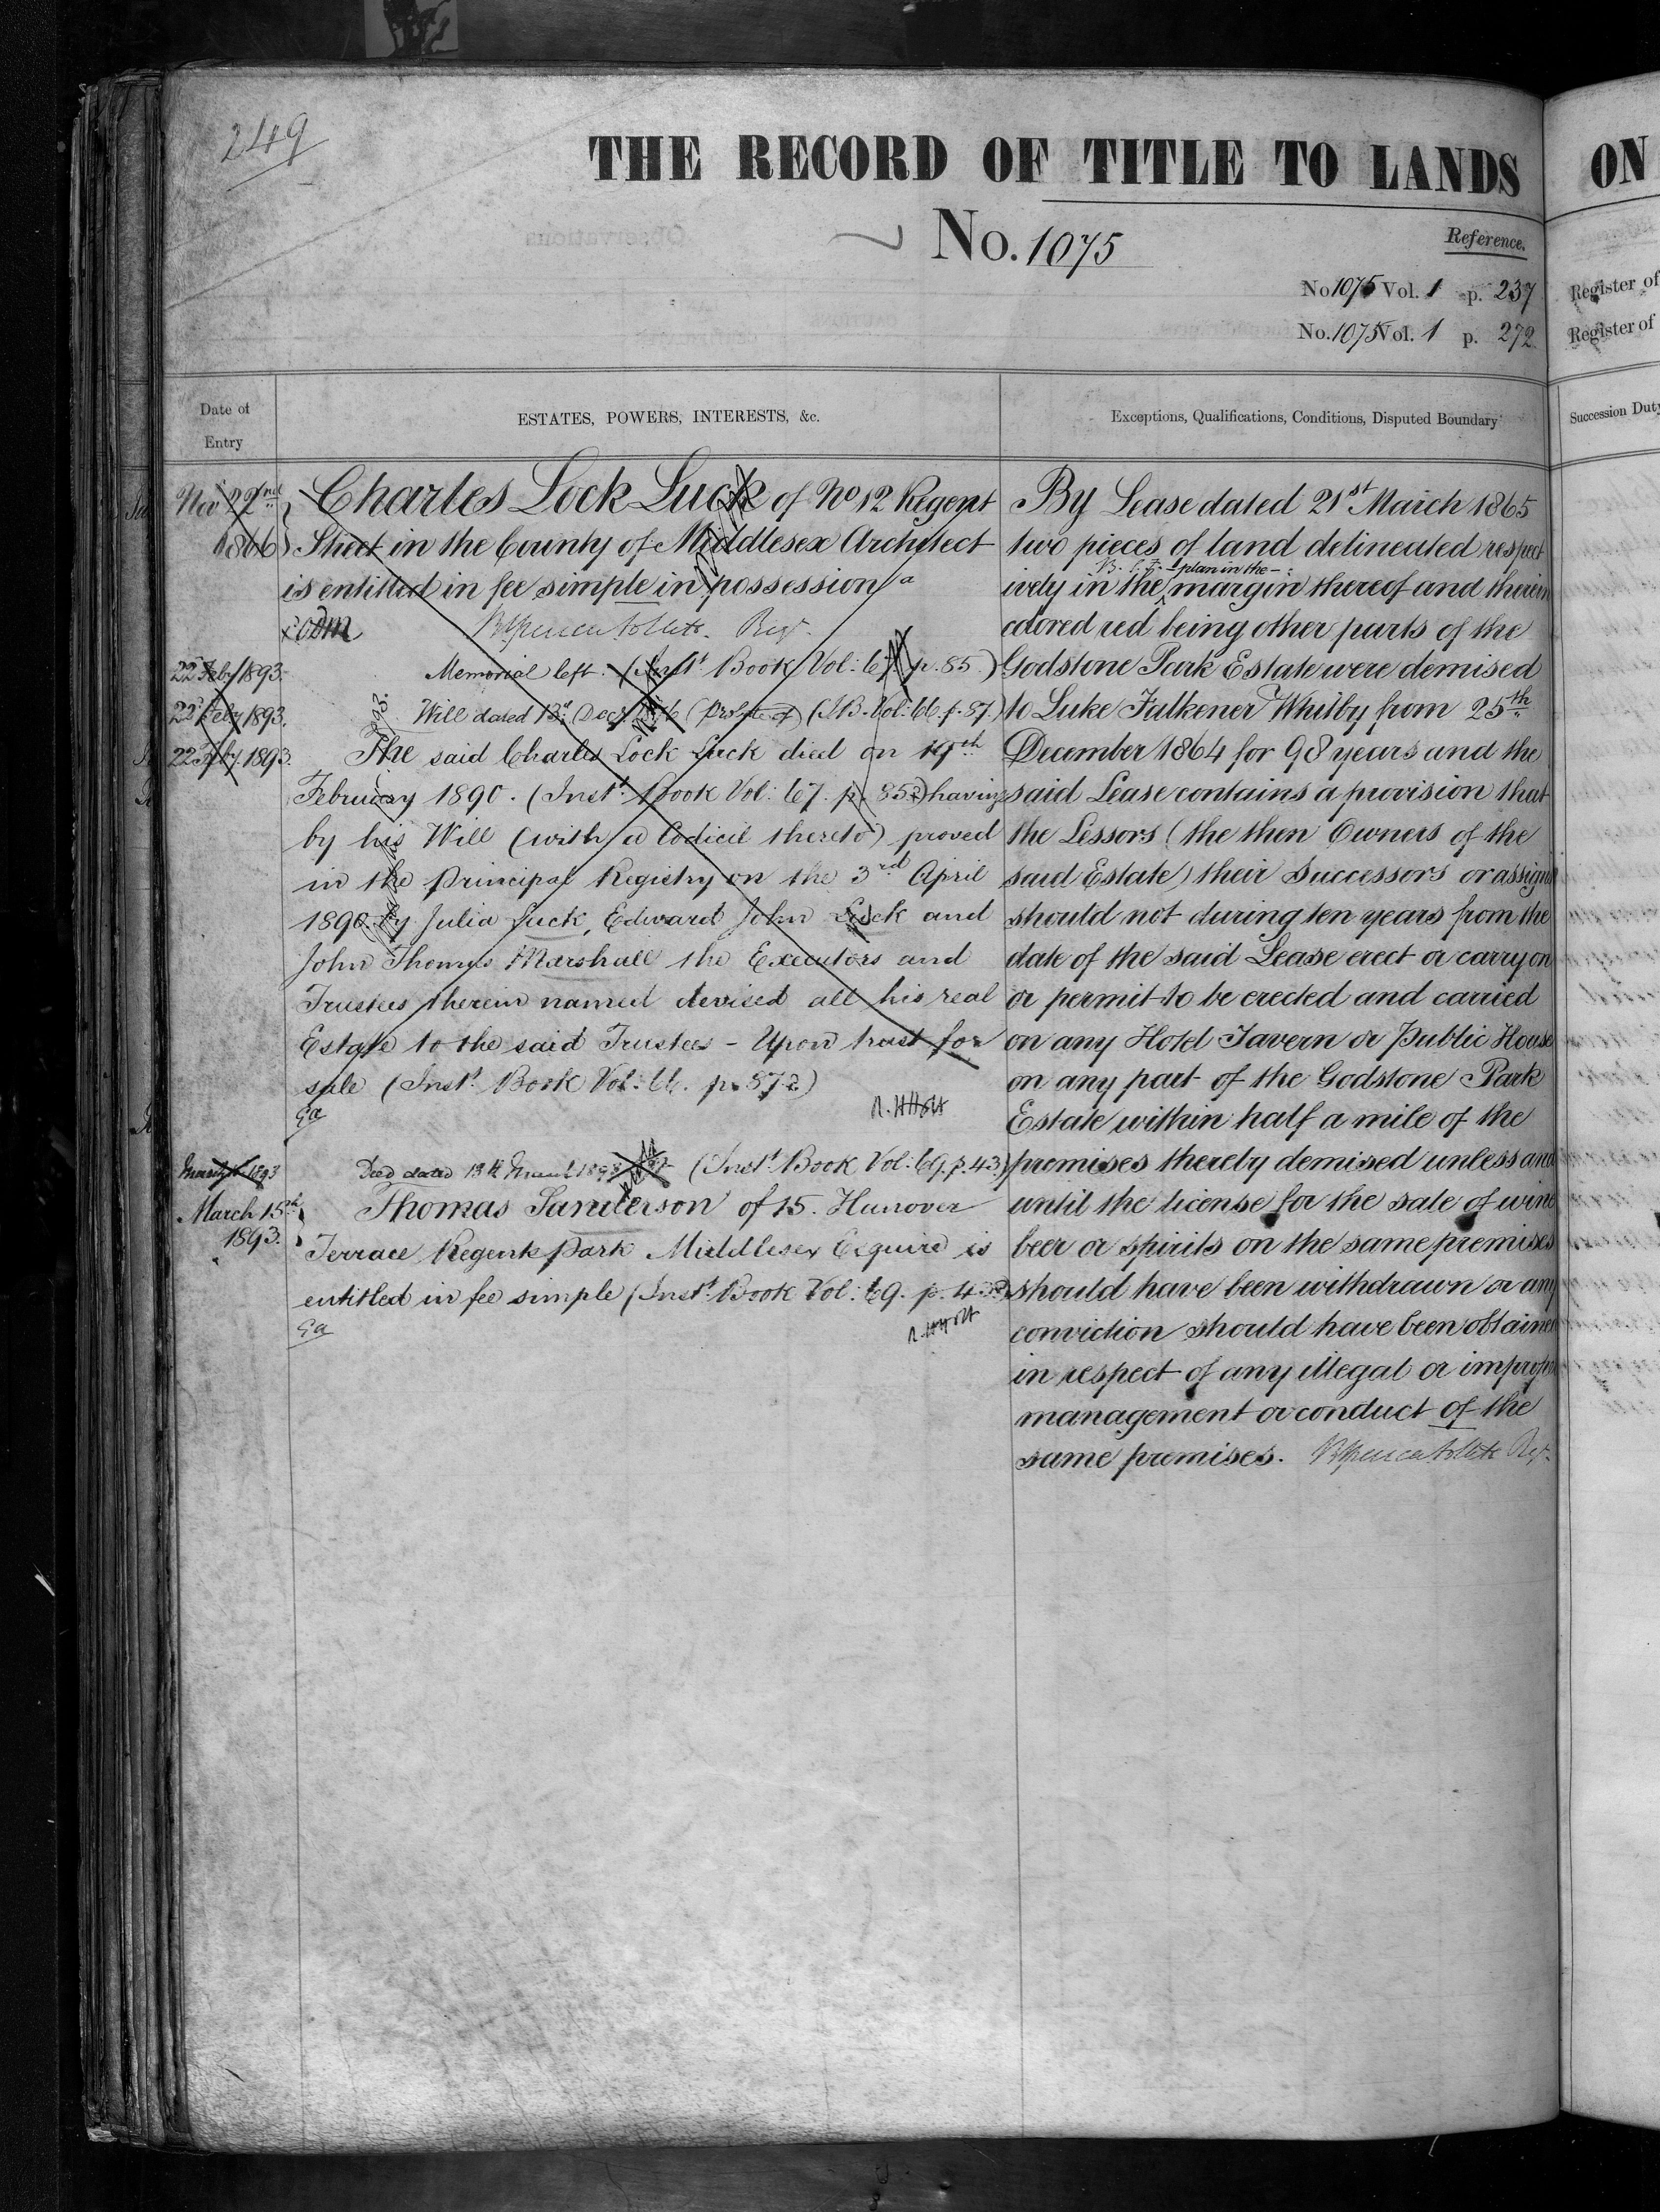 249
THE RECORD OF TITLE TO LANDS
ON
No. 1075
Reference.
No 1075 Vol. 1 p. 237
No. 1075 Vol. 1 p. 272
Register of
Register of
Date of Entry
ESTATES, POWERS, INTERESTS, &c.
Exceptions, Qualifications, Conditions, Disputed Boundary
Succession Duty
Nov 22nd 1866
Charles Lock Luck of No 12 Regent
Street in the County of Middlesex Architect
is entitled in fee simple in possession
22 Feby 1893.
Memorial left. (Inst. Book Vol: 67. p. 85.)
22 Feby 1893.
Will dated 13th Decr (Probate of) (I.B. Vol: 66. p. 87.)
22 Feby 1893.
The said Charles Lock Luck died on 19th
February 1890. (Inst. Book Vol: 67. p. 85) having
by his Will (with a Codicil thereto) proved
in the Principal Registry on the 3rd April
1890 by Julia Luck, Edward John Luck and
John Thomas Marshall the Executors and
Trustees therein named devised all his real
Estate to the said Trustees - Upon trust for
sale (Inst. Book Vol: 66. p. 87)
Deed dated 13th March 1893 (Inst. Book Vol: 69. p. 43)
March 15th 1893.
Thomas Sanderson of 15. Hanover
Terrace Regents Park Middlesex Esquire is
entitled in fee simple (Inst. Book Vol: 69. p. 43)
By Lease dated 21st March 1865
two pieces of land delineated respect
ively in the plan in the margin thereof and therein
colored red being other parts of the
Godstone Park Estate were demised
to Luke Falkener Whitby from 25th
December 1864 for 98 years and the
said Lease contains a provision that
the Lessors (the then Owners of the
said Estate) their Successors or assigns
should not during ten years from the
date of the said Lease erect or carry on
or permit to be erected and carried
on any Hotel Tavern or Public House
on any part of the Godstone Park
Estate within half a mile of the
premises thereby demised unless and
until the license for the sale of wine
beer or spirits on the same premises
should have been withdrawn or any
conviction should have been obtained
in respect of any illegal or improper
management or conduct of the
same premises.